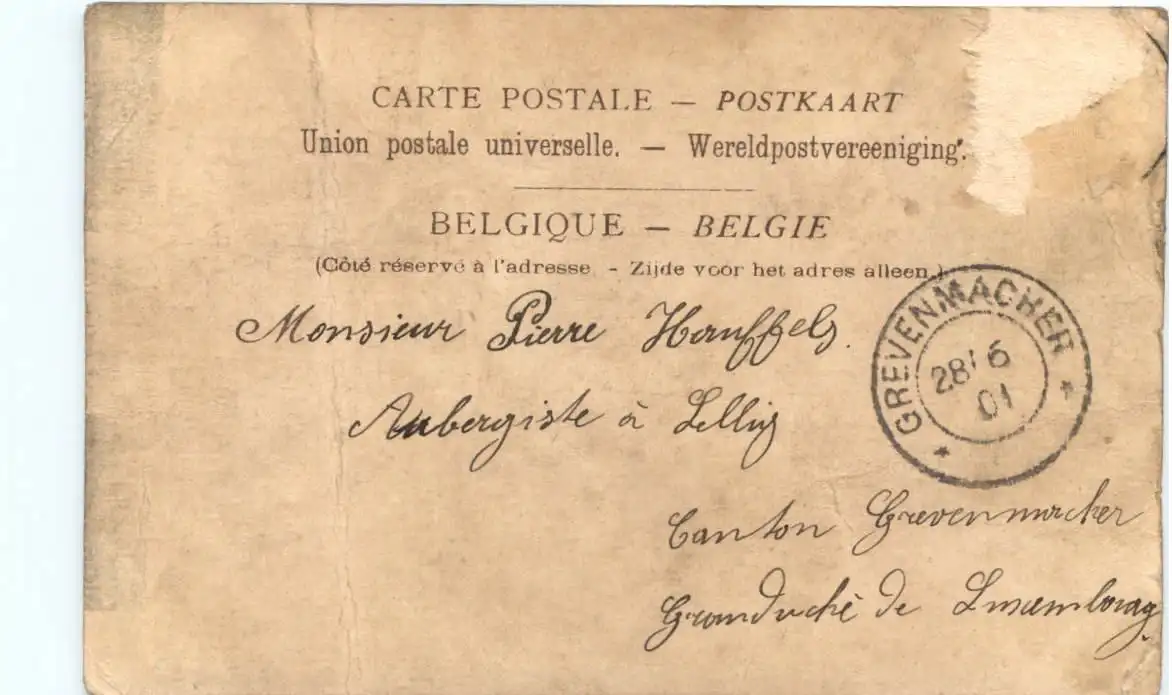 CARTE POSTALE — POSTKAART
Union postale universelle. — Wereldpostvereeniging.
BELGIQUE — BELGIE
(Côté réservé à l'adresse. - Zijde voor het adres alleen.)
Monsieur Pierre Hauffels.
Aubergiste à Lellig
GREVENMACHER
28 6
01
Canton Grevenmacher
Granduché de Luxembourg.